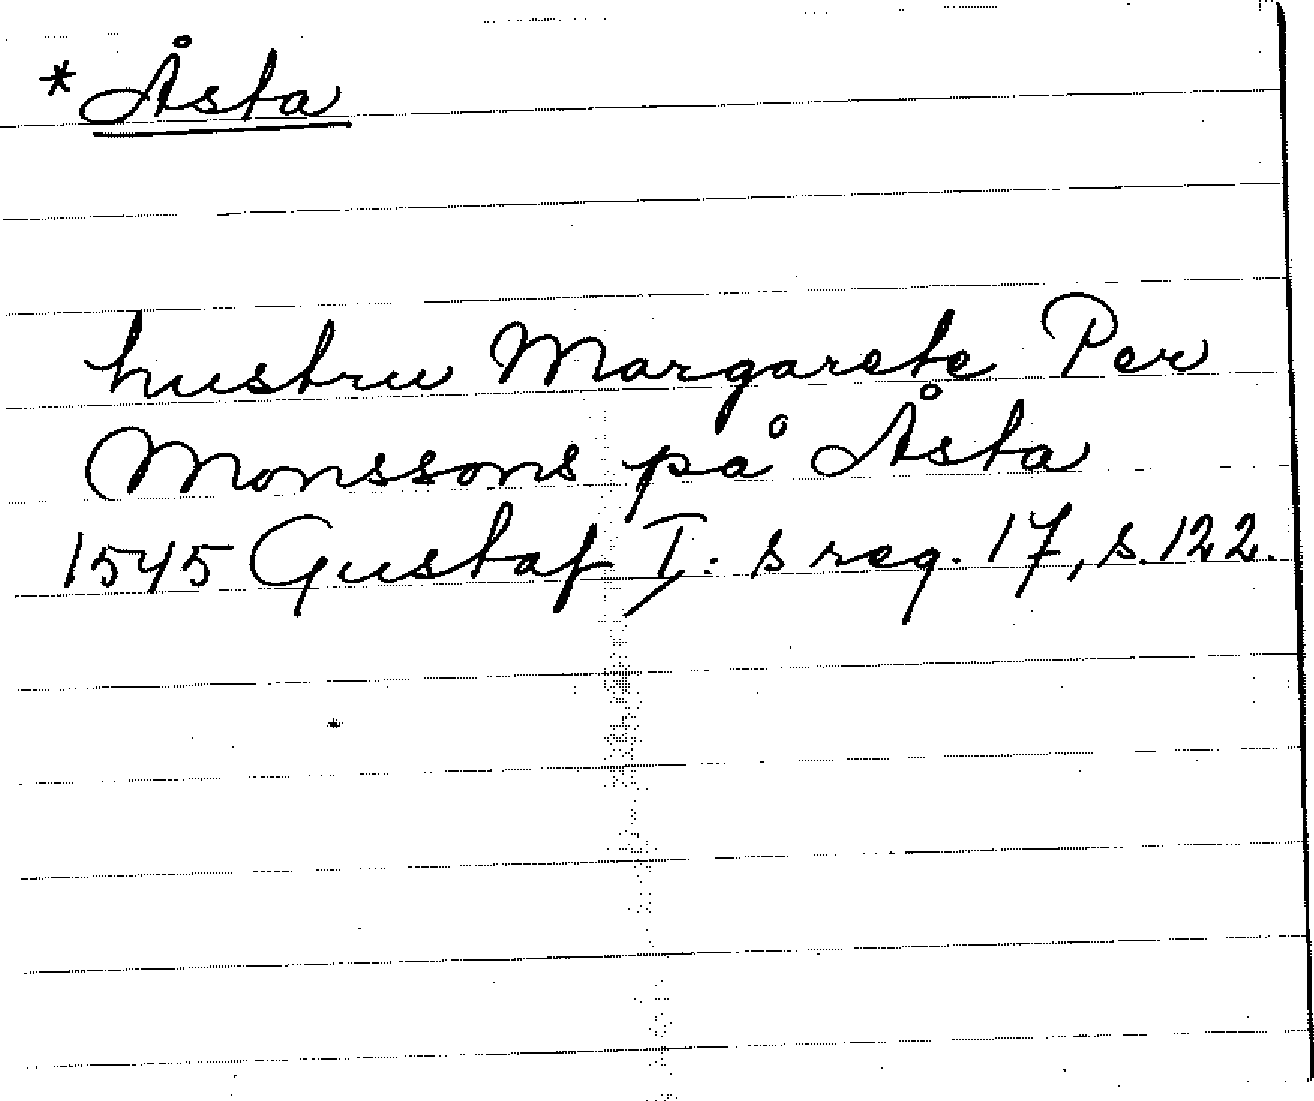 *Åsta
hustru Margarete Per
Monssons på Åsta
1545 Gustaf I: s reg. 17, s. 122.